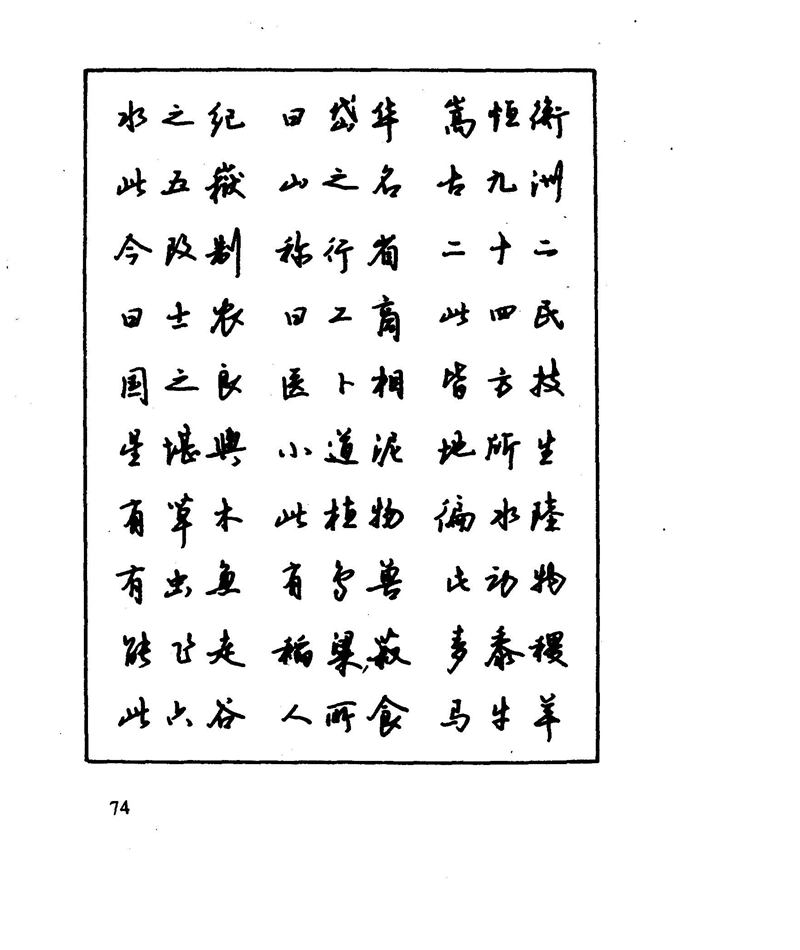 水之纪 曰岱华 嵩恒衡
此五嶽 山之名 古九洲
今改制 称行省 二十二
曰士农 曰工商 此四民
国之良 医卜相 皆方技
星堪舆 小道泥 地所生
有草木 此植物 徧水陸
有虫鱼 有鸟兽 此动物
能飞走 稻梁菽 麦黍稷
此六谷 人所食 马牛羊
74